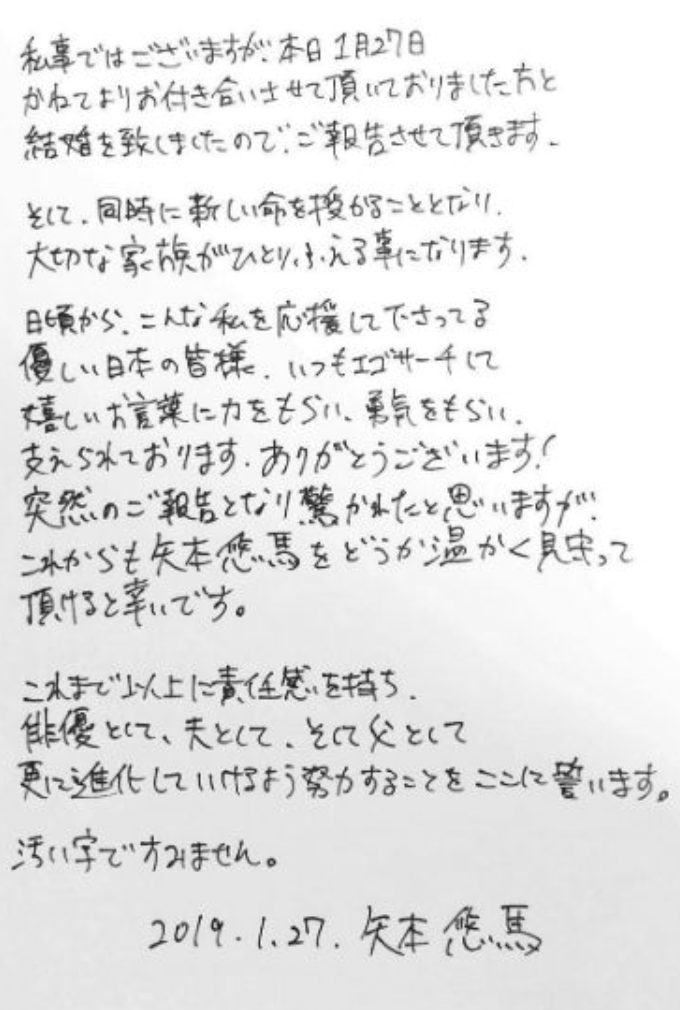 私事ではございますが、本日1月27日
かねてよりお付き合いさせて頂いておりました方と
結婚を致しましたので、ご報告させて頂きます。
そして、同時に新しい命を授かることとなり、
大切な家族がひとり、ふえる事になります。
日頃から、こんな私を応援して下さってる
優しい日本の皆様、いつもエゴサーチして
嬉しいお言葉に力をもらい、勇気をもらい、
支えられております。ありがとうございます!
突然のご報告となり驚かれたと思いますが、
これからも矢本悠馬をどうか温かく見守って
頂けると幸いです。
これまで以上に責任感を持ち、
俳優として、夫として、そして父として
更に進化していけるよう努力することをここに誓います。
汚い字ですみません。
2019.1.27. 矢本悠馬